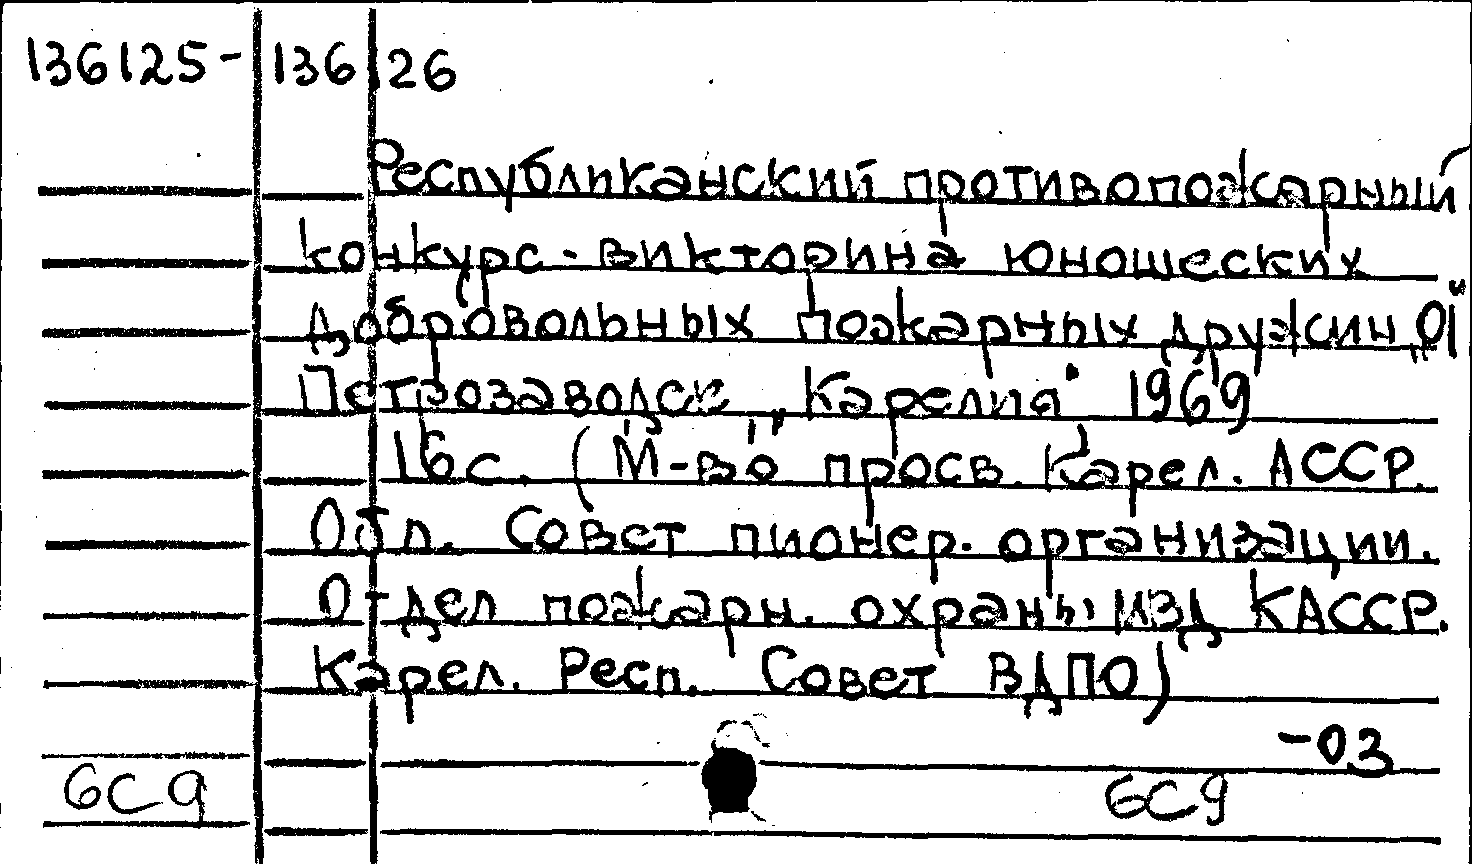 136125-136126
Республиканский противопожарный
конкурс-викторина юношеских
добровольных пожарных дружин,
Петрозаводск „Карелия" 1969
16 с. (М-во просв. Карел. АССР.
Обл. Совет пионер. организации.
Отдел пожарн. охраны КАССР.
Карел. Респ. Совет ВДПО)
-03
6С9 6С9